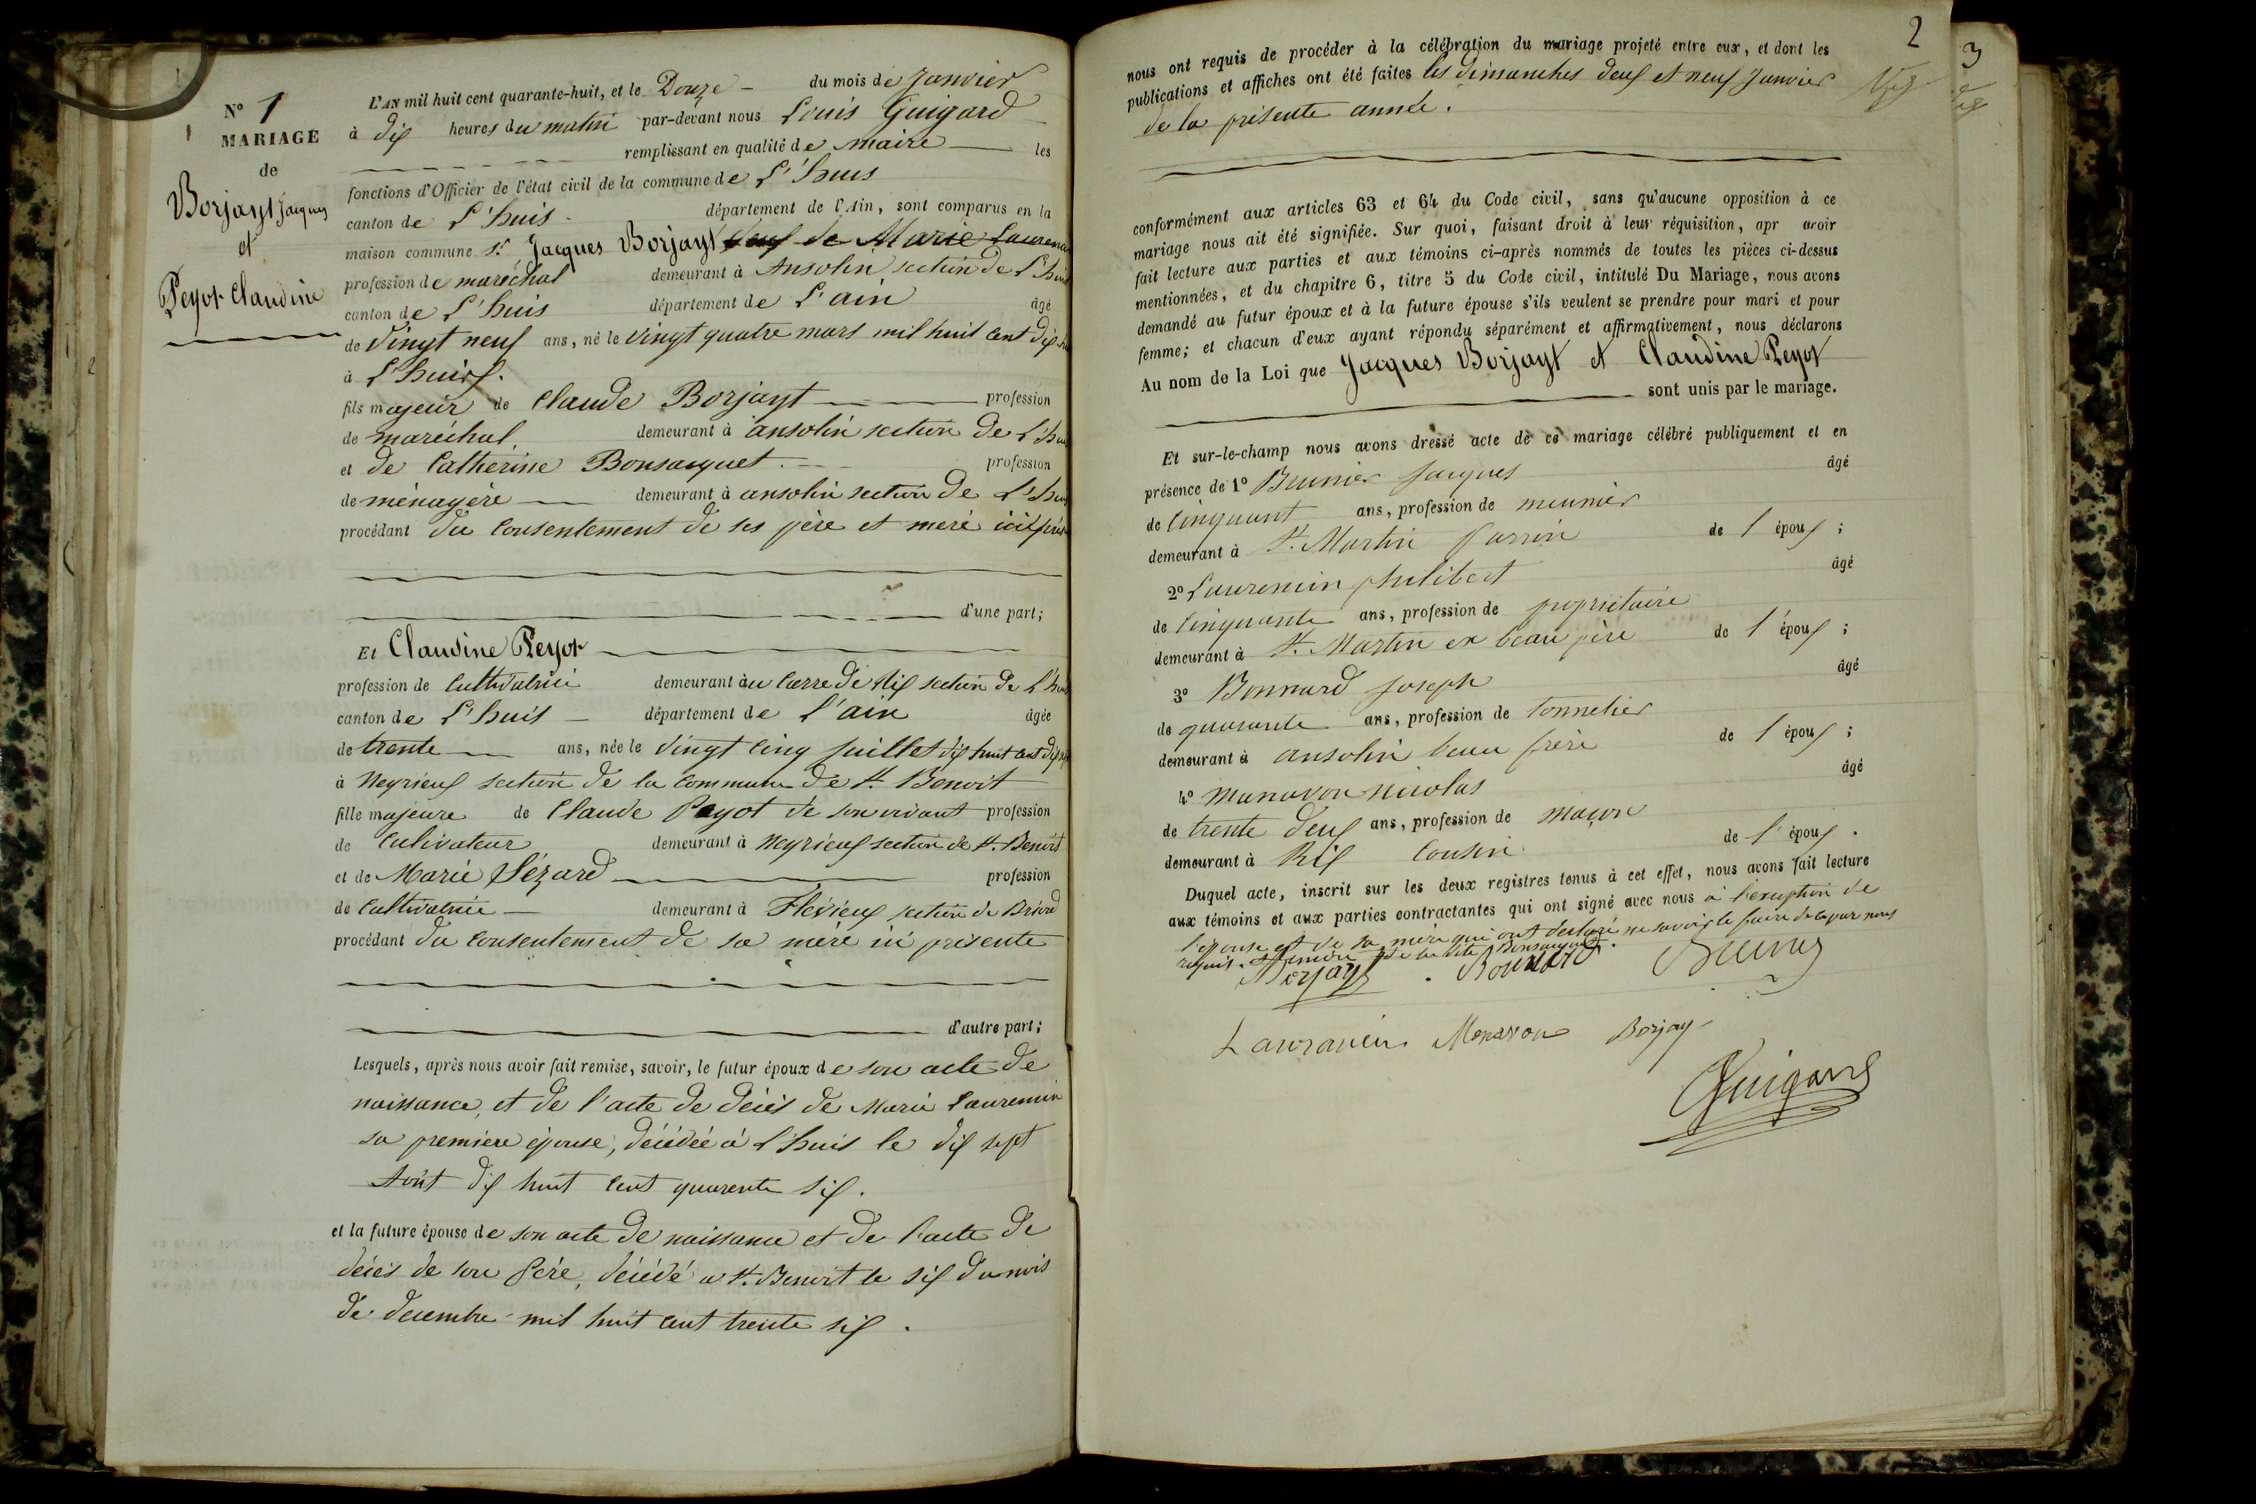 N° 1
MARIAGE
de
Borjayt Jacques
et
Peyot Claudine
L'AN mil huit cent quarante-huit, et le Douze du mois de Janvier
à dix heures du matin par-devant nous Louis Guigard
remplissant en qualité de maire les
fonctions d'Officier de l'état civil de la commune de L'huis
canton de L'huis département de l'Ain, sont comparus en la
maison commune Sr. Jacques Borjayt veuf de Marie Lauren
profession de maréchal demeurant à Ansolin section de L'huis
canton de L'huis département de L'ain âgé
de vingt neuf ans, né le vingt quatre mars mil huit cent dix
à L'huis.
fils majeur de Claude Borjayt profession
de maréchal, demeurant à ansolin section de L'hui
et de Catherine Bonsacquet profession
de ménagère demeurant à ansolin section de L'hui
procédant du consentement de ses père et mère ici
d'une part;
Et Claudine Peyot
profession de cultivatrice demeurant à section de L'hui
canton de L'huis département de L'ain âgée
de trente ans, née le vingt cinq juillet dix huit cent dix
à Neyrieux section de la commune de St. Benoit
fille majeure de Claude Peyot de son vivant profession
de cultivateur demeurant à Neyrieux section de St. Benoit
et de Marie Sézard profession
de cultivatrice demeurant à Flévieux section de Briord
procédant du consentement de sa mère ici présente
d'autre part;
Lesquels, après nous avoir fait remise, savoir, le futur époux de son acte de
naissance, et de l'acte de décès de Marie Lauremin
sa première épouse, décédée à L'huis le dix sept
Août dix huit cent quarente six.
et la future épouse de son acte de naissance et de l'acte de
décès de son père, décédé a St. Benoit le six du mois
de decembre mil huit cent trente six.
2
3
nous ont requis de procéder à la célébration du mariage projeté entre eux, et dont les
publications et affiches ont été faites les dimanches deux et neuf Janvier
de la présente année.
conformément aux articles 63 et 64 du Code civil, sans qu'aucune opposition à ce
mariage nous ait été signifiée. Sur quoi, faisant droit à leur réquisition, apr avoir
fait lecture aux parties et aux témoins ci-après nommés de toutes les pièces ci-dessus
mentionnées, et du chapitre 6, titre 5 du Code civil, intitulé Du Mariage, nous avons
demandé au futur époux et à la future épouse s'ils veulent se prendre pour mari et pour
femme; et chacun d'eux ayant répondu séparément et affirmativement, nous déclarons
Au nom de la Loi que Jacques Borjayt et Claudine Peyot
sont unis par le mariage.
Et sur-le-champ nous avons dressé acte de ce mariage célébré publiquement et en
présence de 1° Brunier Jacques âgé
de cinquant ans, profession de meunier
demeurant à St. Martin parrin de l'époux;
2° Lauremin philibert âgé
de cinquante ans, profession de propriétaire
demeurant à St. Martin ex beau père de l'époux;
3° Bonnard Joseph âgé
de quarante ans, profession de tonnelier
demeurant à ansolin beau frère de l'époux;
4° Manavon nicolas âgé
de trente deux ans, profession de maçon
demeurant à Rix cousin de l'époux.
Duquel acte, inscrit sur les deux registres tenus à cet effet, nous avons fait lecture
aux témoins et aux parties contractantes qui ont signé avec nous à l'exception de
l'épouse et de sa mère qui ont declaré ne savoir le faire de ce par nous
requis. de la dite Bonsacquet.
Borjayt Bonnard Brunier
Lauranein Manavon Borjay
Guigard